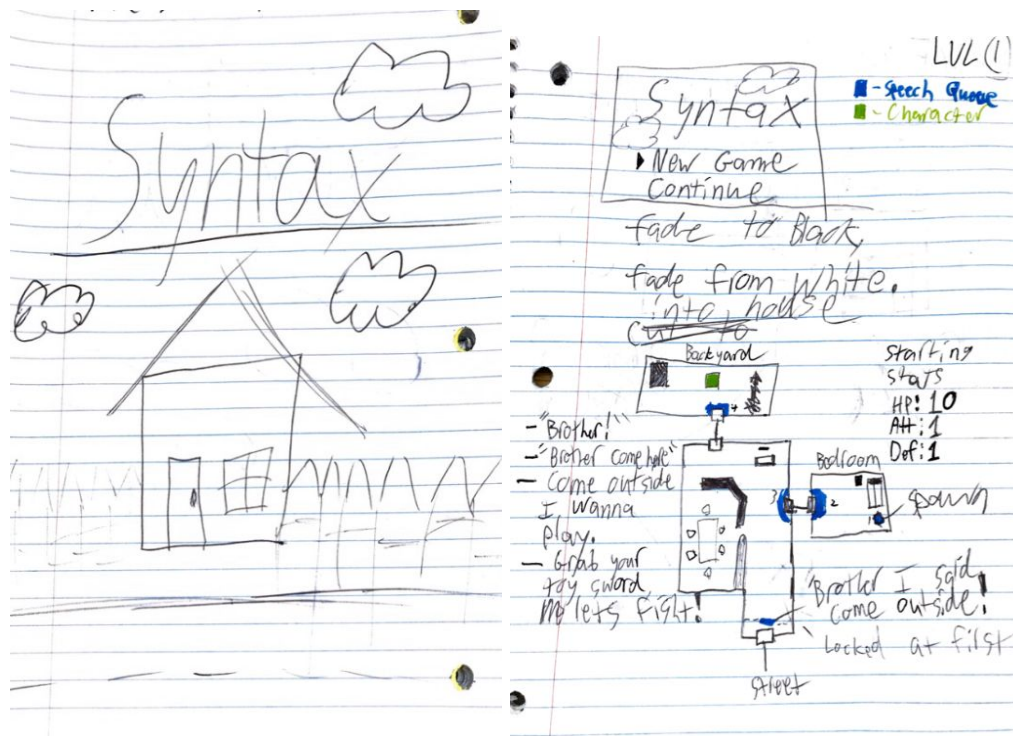 Syntax
LVL 1
- Speech Queue
- Character
Syntax
New Game
Continue
fade to Black,
fade from white.
into house
cut to
Backyard
starting
stats
HP: 10
Att: 1
Def: 1
- "Brother!"
- "Brother come here"
- Come outside
I wanna
play.
- Grab your
toy sword
lets fight!
Bedroom
3
2
1
4
spawn
"Brother I said
come outside!
Locked at first
street